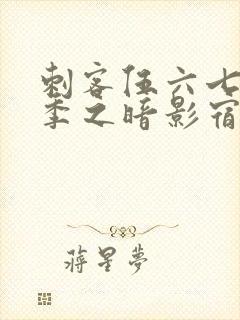 刺客伍六七
季之暗影宿
蒋星夢